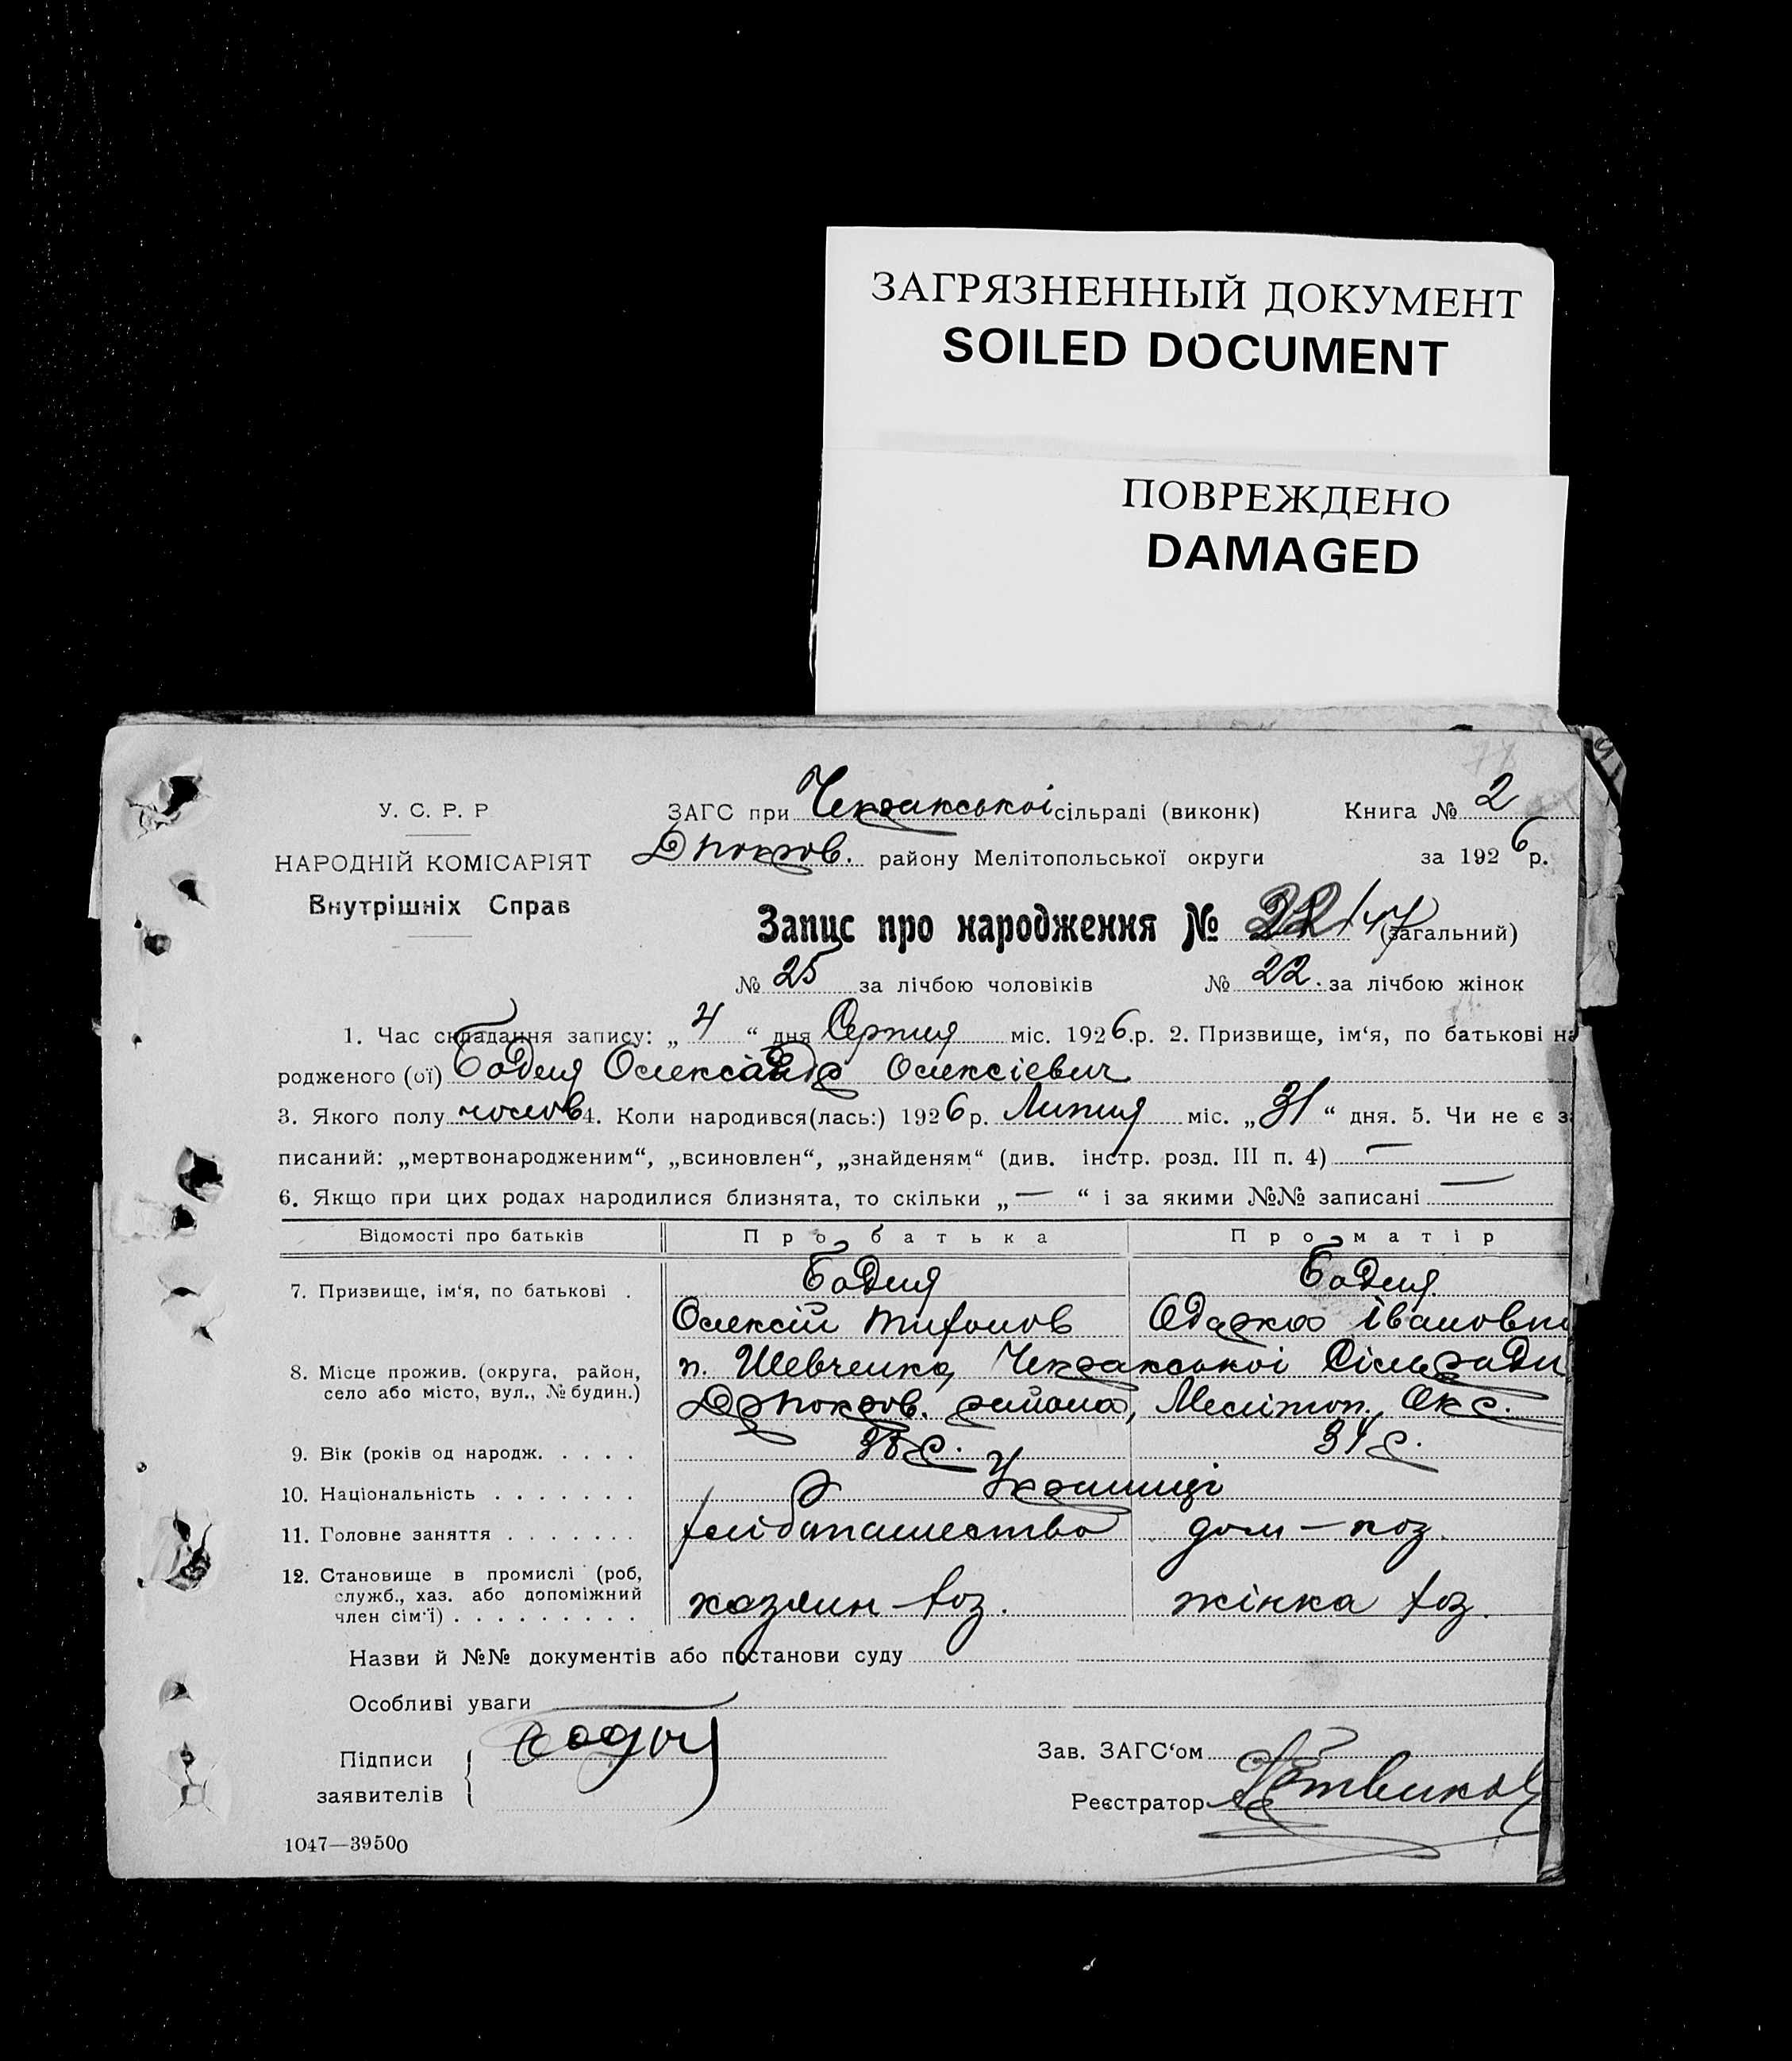 ЗАГРЯЗНЕННЫЙ ДОКУМЕНТ
SOILED DOCUMENT
ПОВРЕЖДЕНО
DAMAGED
У. С. Р. Р
НАРОДНІЙ КОМІСАРІЯТ
Внутрішніх Справ
ЗАГС при Чекракської сільраді (виконк) Книга № 2
району Мелітопольської округи за 1926 р.
Запис про народження № 22/47 (загальний)
№ 25 за лічбою чоловіків № 22. за лічбою жінок
1. Час складання запису: „4“ дня Серпня міс. 1926.р. 2. Призвище, ім‘я, по батькові на
родженого (ої) Бодня Олександр Олексієвич
3. Якого полу чолов 4. Коли народився(лась:) 1926 р. Липня міс. „31“ дня. 5. Чи не є за
писаний: „мертвонародженим“, „всиновлен“, „знайденям“ (див. інстр. розд. III п. 4) —
6. Якщо при цих родах народилися близнята, то скільки „—“ і за якими №№ записані —
Відомості про батьків Про батька Про матір
7. Призвище, ім‘я, по батькові . Бодня Бодня
Олексій Тифонов Одарка Івановна
8. Місце прожив. (округа, район, село або місто, вул., № будин.) п. Шевченка, Чекракської Сільради
Дрпокров. района, Меліт. Окр.
9. Вік (років од народж. . . . . 38 р. 34 р.
10. Національність . . . . . . . Українці
11. Головне заняття . . . . . . . хліборобство дом — хоз.
12. Становище в промислі (роб,
служб., хаз. або допоміжний
член сім‘ї) . . . . . . . . . хозяин хоз. жінка хоз.
Назви й №№ документів або постанови суду
Особливі уваги —
Підписи Бодня
заявителів
Зав. ЗАГС‘ом
Реєстратор
1047—39500